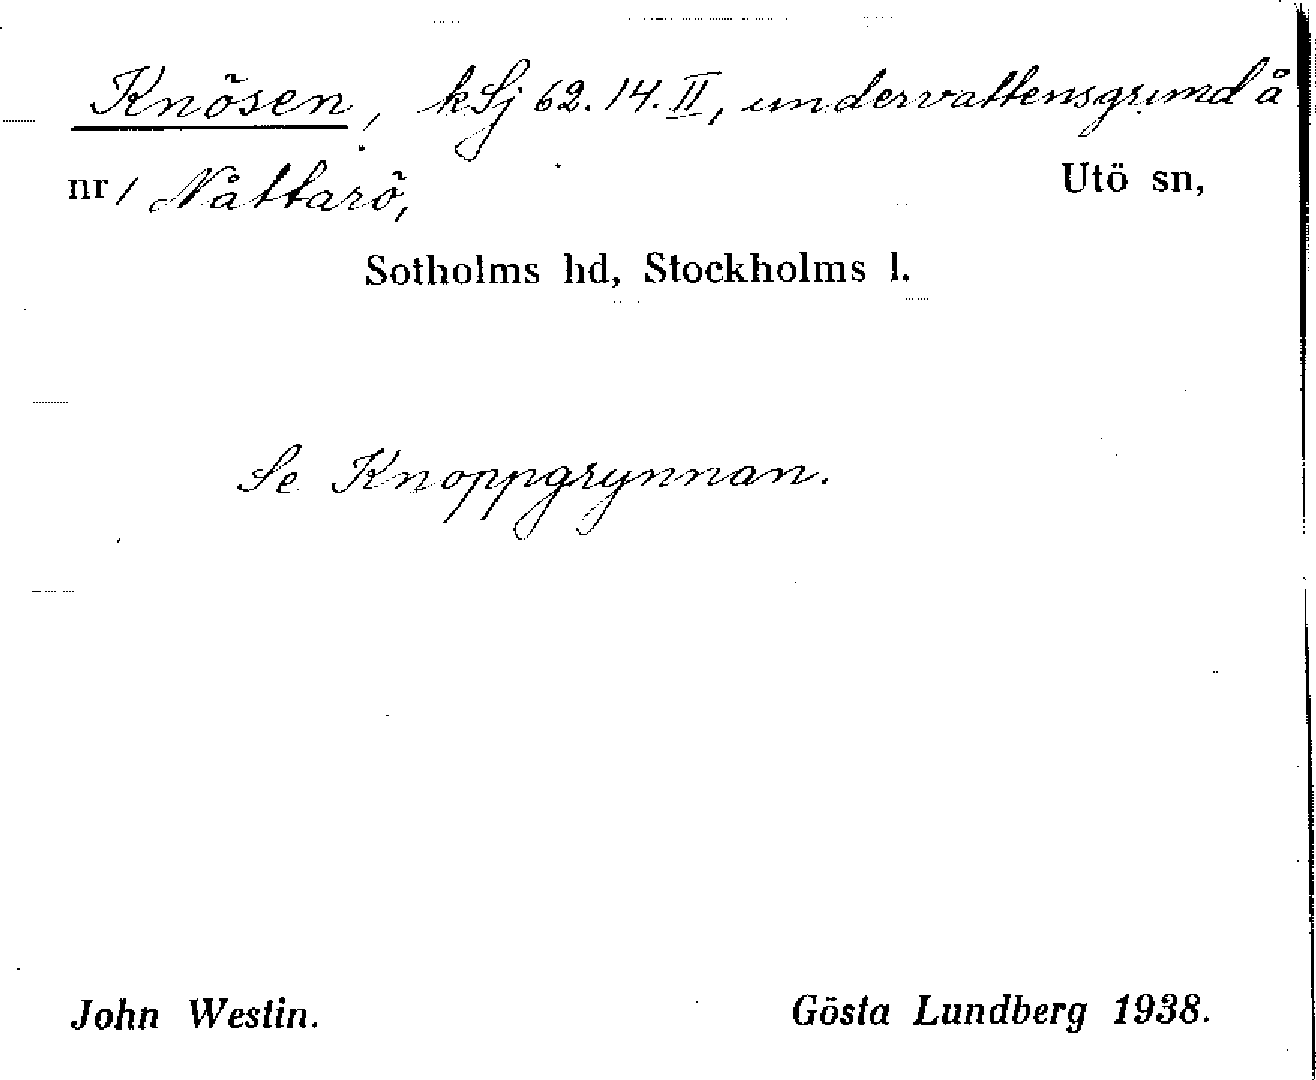 Knösen, kSj 62.14.II, undervattensgrund å
nr 1 Nåttarö, Utö sn,
Sotholms hd, Stockholms l.
Se Knoppgrynnan.
John Westin. Gösta Lundberg 1938.